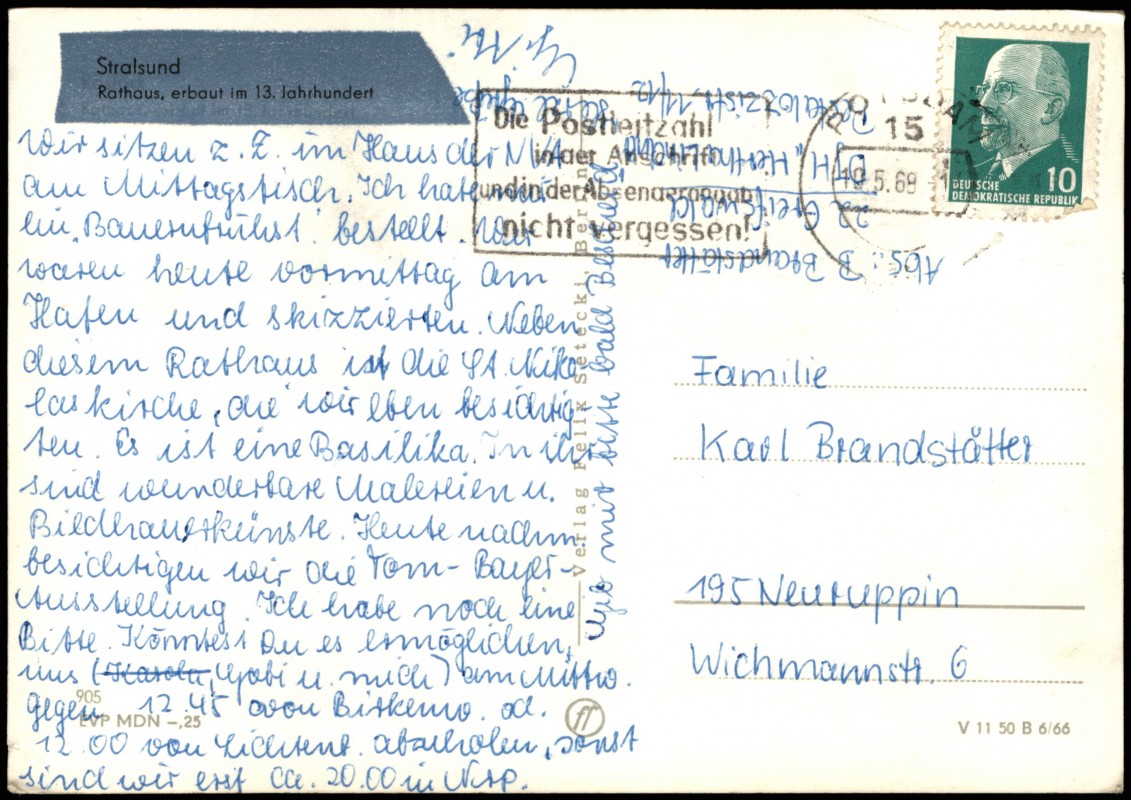 Stralsund
Rathaus, erbaut im 13. Jahrhundert
Wir sitzen z. Z. im Haus der NVA
am Mittagstisch. Ich habe mir
ein „Bauernfrühst. bestellt. Wir
waren heute vormittag am
Hafen und skizzierten. Neben
diesem Rathaus ist die St. Niko
laskirche, die wir eben besichtig
ten. Es ist eine Basilika. In ihr
sind wunderbare Malereien u.
Bildhauerkünste. Heute nachm.
besichtigen wir die Tom-Bayer-
Ausstellung. Ich habe noch eine
Bitte. Könntest Du es ermöglichen,
uns (Karola, Gabi u. mich) am Mittw.
gegen 12.45 von Birkenw. od.
12.00 von Lichtenb. abzuholen, sonst
sind wir erst ca. 20.00 in Nrp.
Gib mir bitte bald Bescheid!
905
EVP MDN –,25
Verlag Felix Setecki, Berlin
Die Postleitzahl
in der Anschrift
und in der Absenderangabe
nicht vergessen!
POTSDAM
15
19.5.69
DEUTSCHE
DEMOKRATISCHE REPUBLIK
10
Abs.: B Brandstätter
22 Greifswald
Pestalozzistr. 11/12
Familie
Karl Brandstätter
195 Neuruppin
Wichmannstr. 6
V 11 50 B 6/66